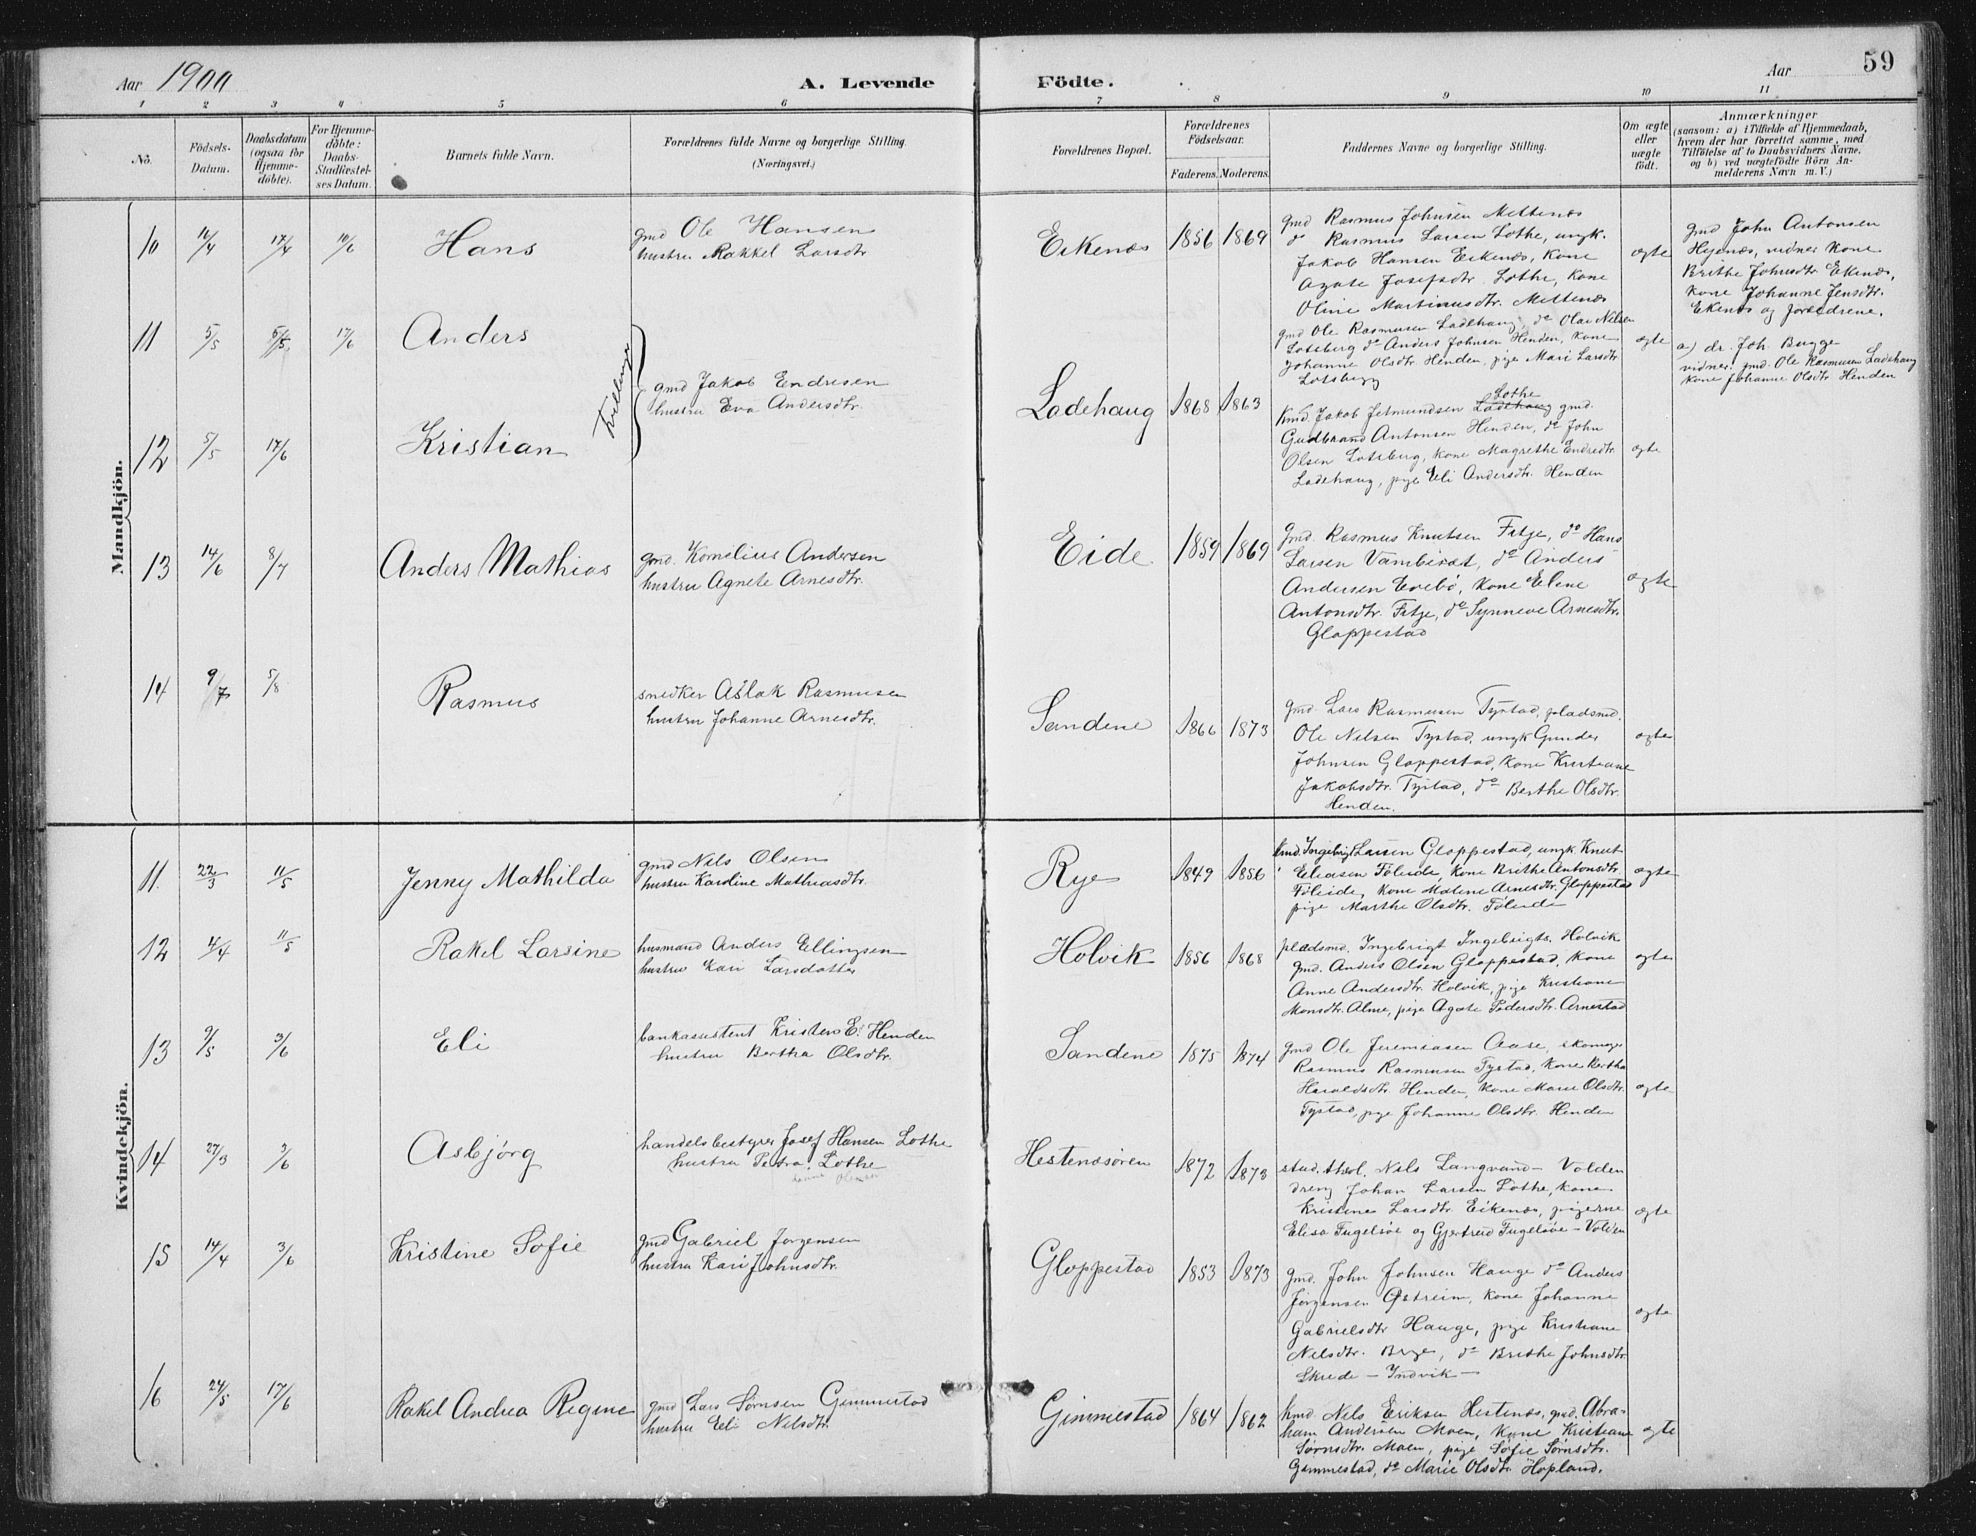 Aar 1900
A. Levende Födte.
Aar
59
1 2 3 4 5 6 7 8 9 10 11
No.
Födsels-Datum.
Daabsdatum (ogsaa for Hjemmedöbte).
For Hjemmedöbte: Daabs-Stadfæstelses Datum.
Barnets fulde Navn.
Forældrenes fulde Navne og borgerlige Stilling.
(Næringsvei.)
Forældrenes Bopæl.
Forældrenes Födselsaar.
Faderens. Moderens.
Faddernes Navne og borgerlige Stilling.
Om ægte eller uægte födt.
Anmærkninger
(saasom: a) i Tilfælde af Hjemmedaab,
hvem der har forrettet samme, med
Tilföielse af to Daabsvidners Navne,
og b) ved uægtefödte Börn An-
melderens Navn m. V.)
Mandkjön.
10 16/4 17/4 10/6 Hans
gmd Ole Hansen
hustru Rakkel Larsdtr
Eikenæs 1856 1869
gmd Rasmus Johnsen Mettenæs
do Rasmus Larsen Lothe, ungk.
Jakob Hansen Eikenæs, kone
Agate Josefsdtr. Lothe, kone
Oline Martinusdtr. Mettenæs
ægte
gmd John Antonsen
Hejenæs, vidner kone
Brithe Johnsdtr. Ekenæs,
kone Johanne Jensdtr.
Ekenæs og forældrene.
11 5/5 6/5 17/6 Anders
Tvillinger
gmd Jakob Endresen
hustru Eva Andersdtr.
Ladehaug 1868 1863
gmd Ole Rasmusen Ladehaug, do Olai Nilsen
Lotsberg do Anders Johnsen Henden, kone
Johanne Olsdtr Henden, pige Mari Larsdtr
Lotsberg
ægte
a) dr. Joh. Bugge
vidner: gmd. Ole Rasmusen Ladehaug
kone Johanne Olsdtr Henden
12 5/5 17/6 Kristian
Kmd. Jakob Jetmundsen Ladehaug Lothe gmd.
Gudbrand Antonsen Henden, do John
Olsen Lotsberg, kone Magrethe Endredtr
Ladehaug, pige Eli Andersdtr. Henden
ægte
13 14/6 8/7 Anders Mathias
gmd. Kornelius Andersen
hustru Agnete Arnesdtr.
Eide 1859 1869
Gmd. Rasmus Knutsen Fitje, do Hans
Larsen Vambesæt, do Anders
Andersen Evebö, kone Elene
Antonsdtr. Fitje, do Synneve Arnesdtr.
Gloppestad
ægte
14 9/7 5/8 Rasmus
snedker Aslak Rasmusen
hustru Johanne Arnesdtr.
Sandene 1866 1873
gmd Lars Rasmusen Tystad, pladsmd.
Ole Nilsen Tystad, ungk Gunder
Johnsen Gloppestad, kone Kristiane
Jakobsdtr. Tystad, do Berthe Olsdtr.
Henden.
ægte
Kvindekjön.
11. 22/3 11/5 Jenny Mathilda
gmd Nils Olsen
hustru Karoline Mathiasdtr.
Rye 1849 1856
kmd. Ingebrigt Larsen Gloppestad, ungk. Knut
Eliasen Föleide, kone Brithe Antonsdtr.
Föleide, kone Malene Arnesdtr. Gloppestad
pige Marthe Olsdtr. Föleide
ægte
12 4/4 11/5 Rakel Larsine
husmand Anders Ellingsen
hustru Kari Larsdatter
Holvik 1856 1868
pladsmd. Ingebrigt Ingebrigts. Holvik
gmd. Anders Olsen Gloppestad, kone
Anne Andersdtr. Holvik, pige Kristiane
Monsdtr. Alme, pige Agate Pedersdtr. Arnestad
ægte
13 9/5 3/6 Eli
bankassistent Kristen E. Henden
hustru Bertha Olsdtr.
Sandene 1875 1874
gmd Ole Jeremiasen Aase, skomager
Rasmus Rasmusen Tystad, kone Bertha
Haraldsdtr. Henden, kone Marie Olsdtr.
Tystad, pige Johanne Olsdtr. Henden
ægte
14 27/3 3/6 Asbjörg
handelsbestyrer Josef Hansen Lothe
hustru Petra Lothe
Hestenæsören 1872 1873
stud. theol. Nils Langvand - Volden
dreng Johan Larsen Lothe, kone
Kristine Larsdtr. Eikenæs, pigerne
Elisa Fugelsöe og Gjertrud Fugelsöe - Volden
ægte
15 14/4 3/6 Kristine Sofie
gmd Gabriel Jörgensen
hustru Kari Johnsdtr.
Gloppestad 1853 1873
gmd. John Johnsen Hauge do Anders
Jörgensen Östreim, kone Johanne
Gabrielsdtr Hauge, pige Kristiane
Nilsdtr. Brye, do Brithe Johnsdtr.
Skrede - Indvik -
ægte
16 24/5 17/6 Rakel Andrea Regine
gmd Lars Sörnsen Gimmestad
hustru Eli Nilsdtr.
Gimmestad 1864 1862
kmd. Nils Eriksen Hestenæs, gmd. Abra-
ham Andersen Moen, kone Kristiane
Sörnsdtr. Moen, pige Sofie Sörnsdtr.
Gimmestad, do Marie Olsdtr Hopland.
ægte